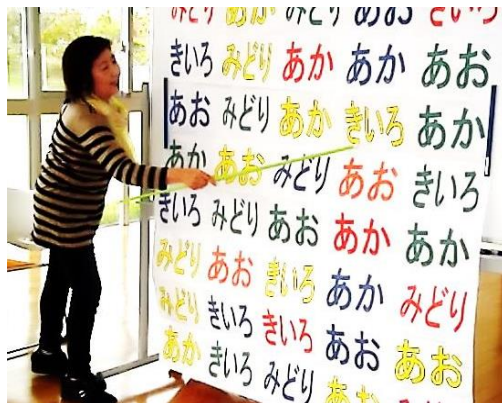 みどり あか みどり あお きいろ
きいろ みどり あか あか あお
あお みどり あか きいろ あか
あか あお みどり あお きいろ
きいろ みどり あお あか あか
みどり あお きいろ あか みどり
みどり きいろ きいろ あお あお
あか きいろ みどり あお